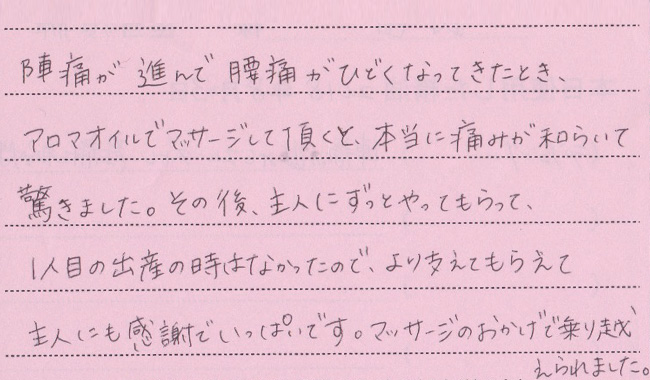 陣痛が進んで腰痛がひどくなってきたとき、
アロマオイルでマッサージして頂くと、本当に痛みが和らいで
驚きました。その後、主人にずっとやってもらって、
1人目の出産の時はなかったので、より支えてもらえて
主人にも感謝でいっぱいです。マッサージのおかげで乗り越
えられました。